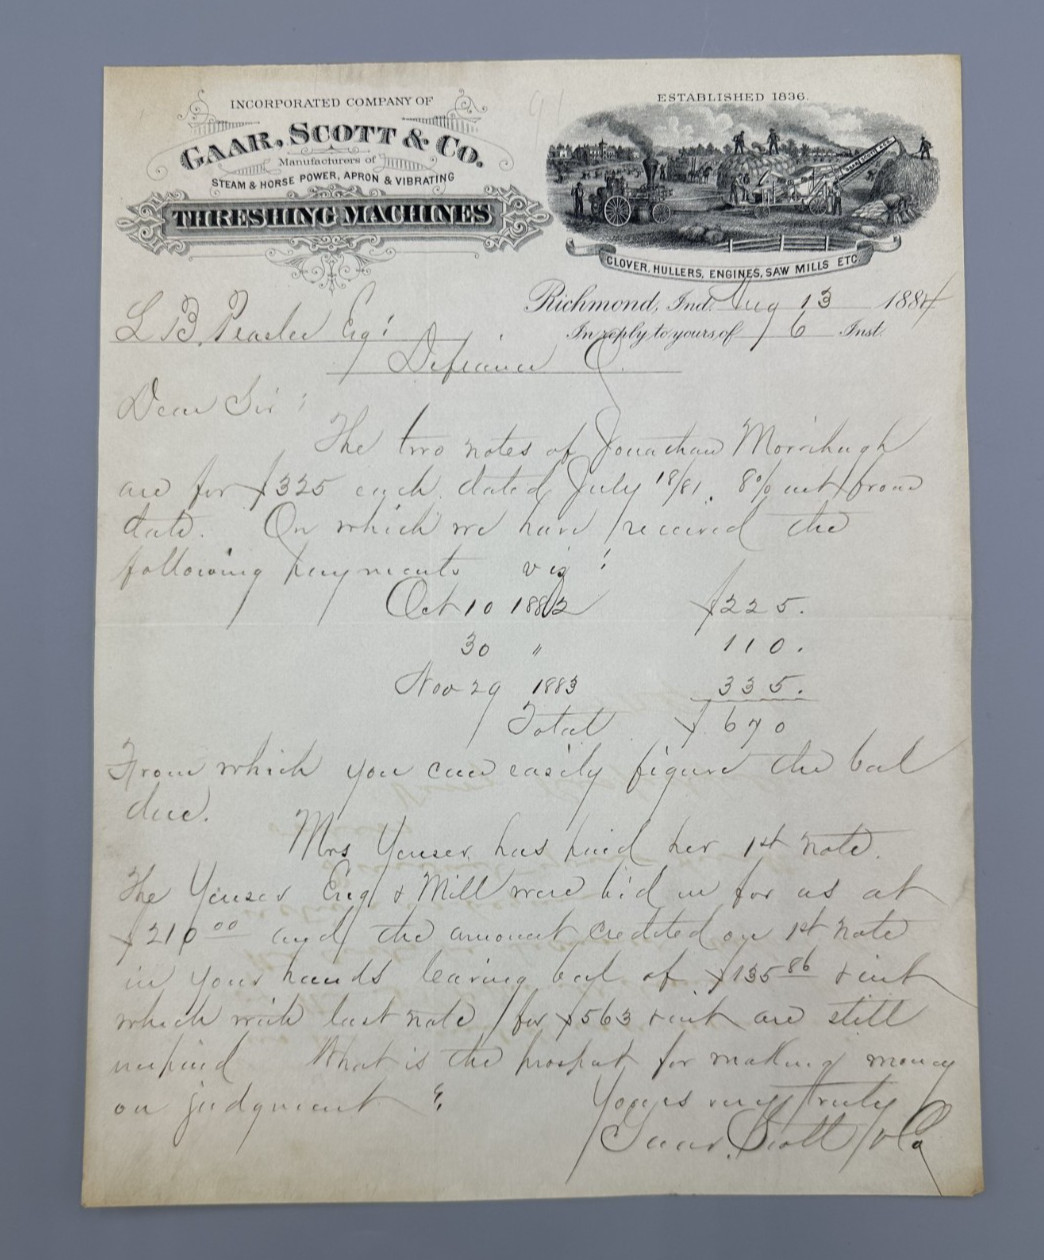 INCORPORATED COMPANY OF
GAAR, SCOTT & CO.
Manufacturers of
STEAM & HORSE POWER, APRON & VIBRATING
THRESHING MACHINES
ESTABLISHED 1836.
CLOVER, HULLERS, ENGINES, SAW MILLS ETC
Richmond, Ind. Aug 13 1884
In reply to yours of 6 Inst.
L B. Peaslee Esq
Defiance O.
Dear Sir :
The two notes of Jonathan
are for $325 each dated July 18/81. 8% int from
date. On which we have received the
following payments viz :
Oct 10 1882 $225.
30 " 110.
Nov 29 1883 335.
Total $670
From which you can easily figure the bal
due.
Mrs Yenser has paid her 1st note.
The Yenser Eng & Mill were bid in for us at
$210 00 and the amount credited on 1st note
in your hands leaving bal of $135 86 & int
which with last note for $563 & int are still
unpaid What is the prospect for making money
on judgment ?
Yours very truly
Gaar, Scott & Co